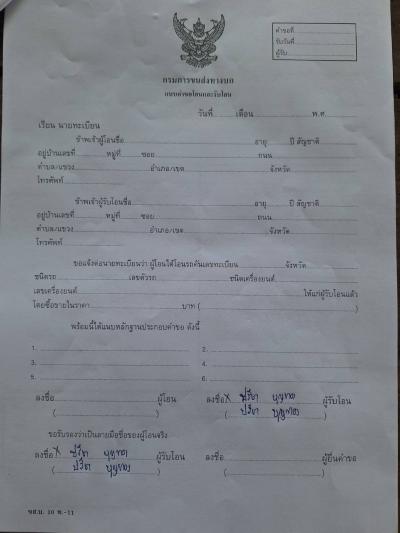 คำขอที่
รับวันที่
ผู้รับ
กรมการขนส่งทางบก
แบบคำขอโอนและรับโอน
วันที่ เดือน พ.ศ.
เรียน นายทะเบียน
ข้าพเจ้าผู้โอนชื่อ อายุ ปี สัญชาติ
อยู่บ้านเลขที่ หมู่ที่ ซอย ถนน
ตำบล/แขวง อำเภอ/เขต จังหวัด
โทรศัพท์
ข้าพเจ้าผู้รับโอนชื่อ อายุ ปี สัญชาติ
อยู่บ้านเลขที่ หมู่ที่ ซอย ถนน
ตำบล/แขวง อำเภอ/เขต จังหวัด
โทรศัพท์
ขอแจ้งต่อนายทะเบียนว่า ผู้โอนได้โอนรถคันเลขทะเบียน จังหวัด
ชนิดรถ เลขตัวรถ ชนิดเครื่องยนต์
เลขเครื่องยนต์ ให้แก่ผู้รับโอนแล้ว
โดยซื้อขายในราคา บาท ( )
พร้อมนี้ได้แนบหลักฐานประกอบคำขอ ดังนี้
1. 2.
3. 4.
5. 6.
ลงชื่อ ผู้โอน ลงชื่อ X ผู้รับโอน
( ) ( )
ขอรับรองว่าเป็นลายมือชื่อของผู้โอนจริง
ลงชื่อ X ผู้รับโอน ลงชื่อ ผู้ยื่นคำขอ
( ) ( )